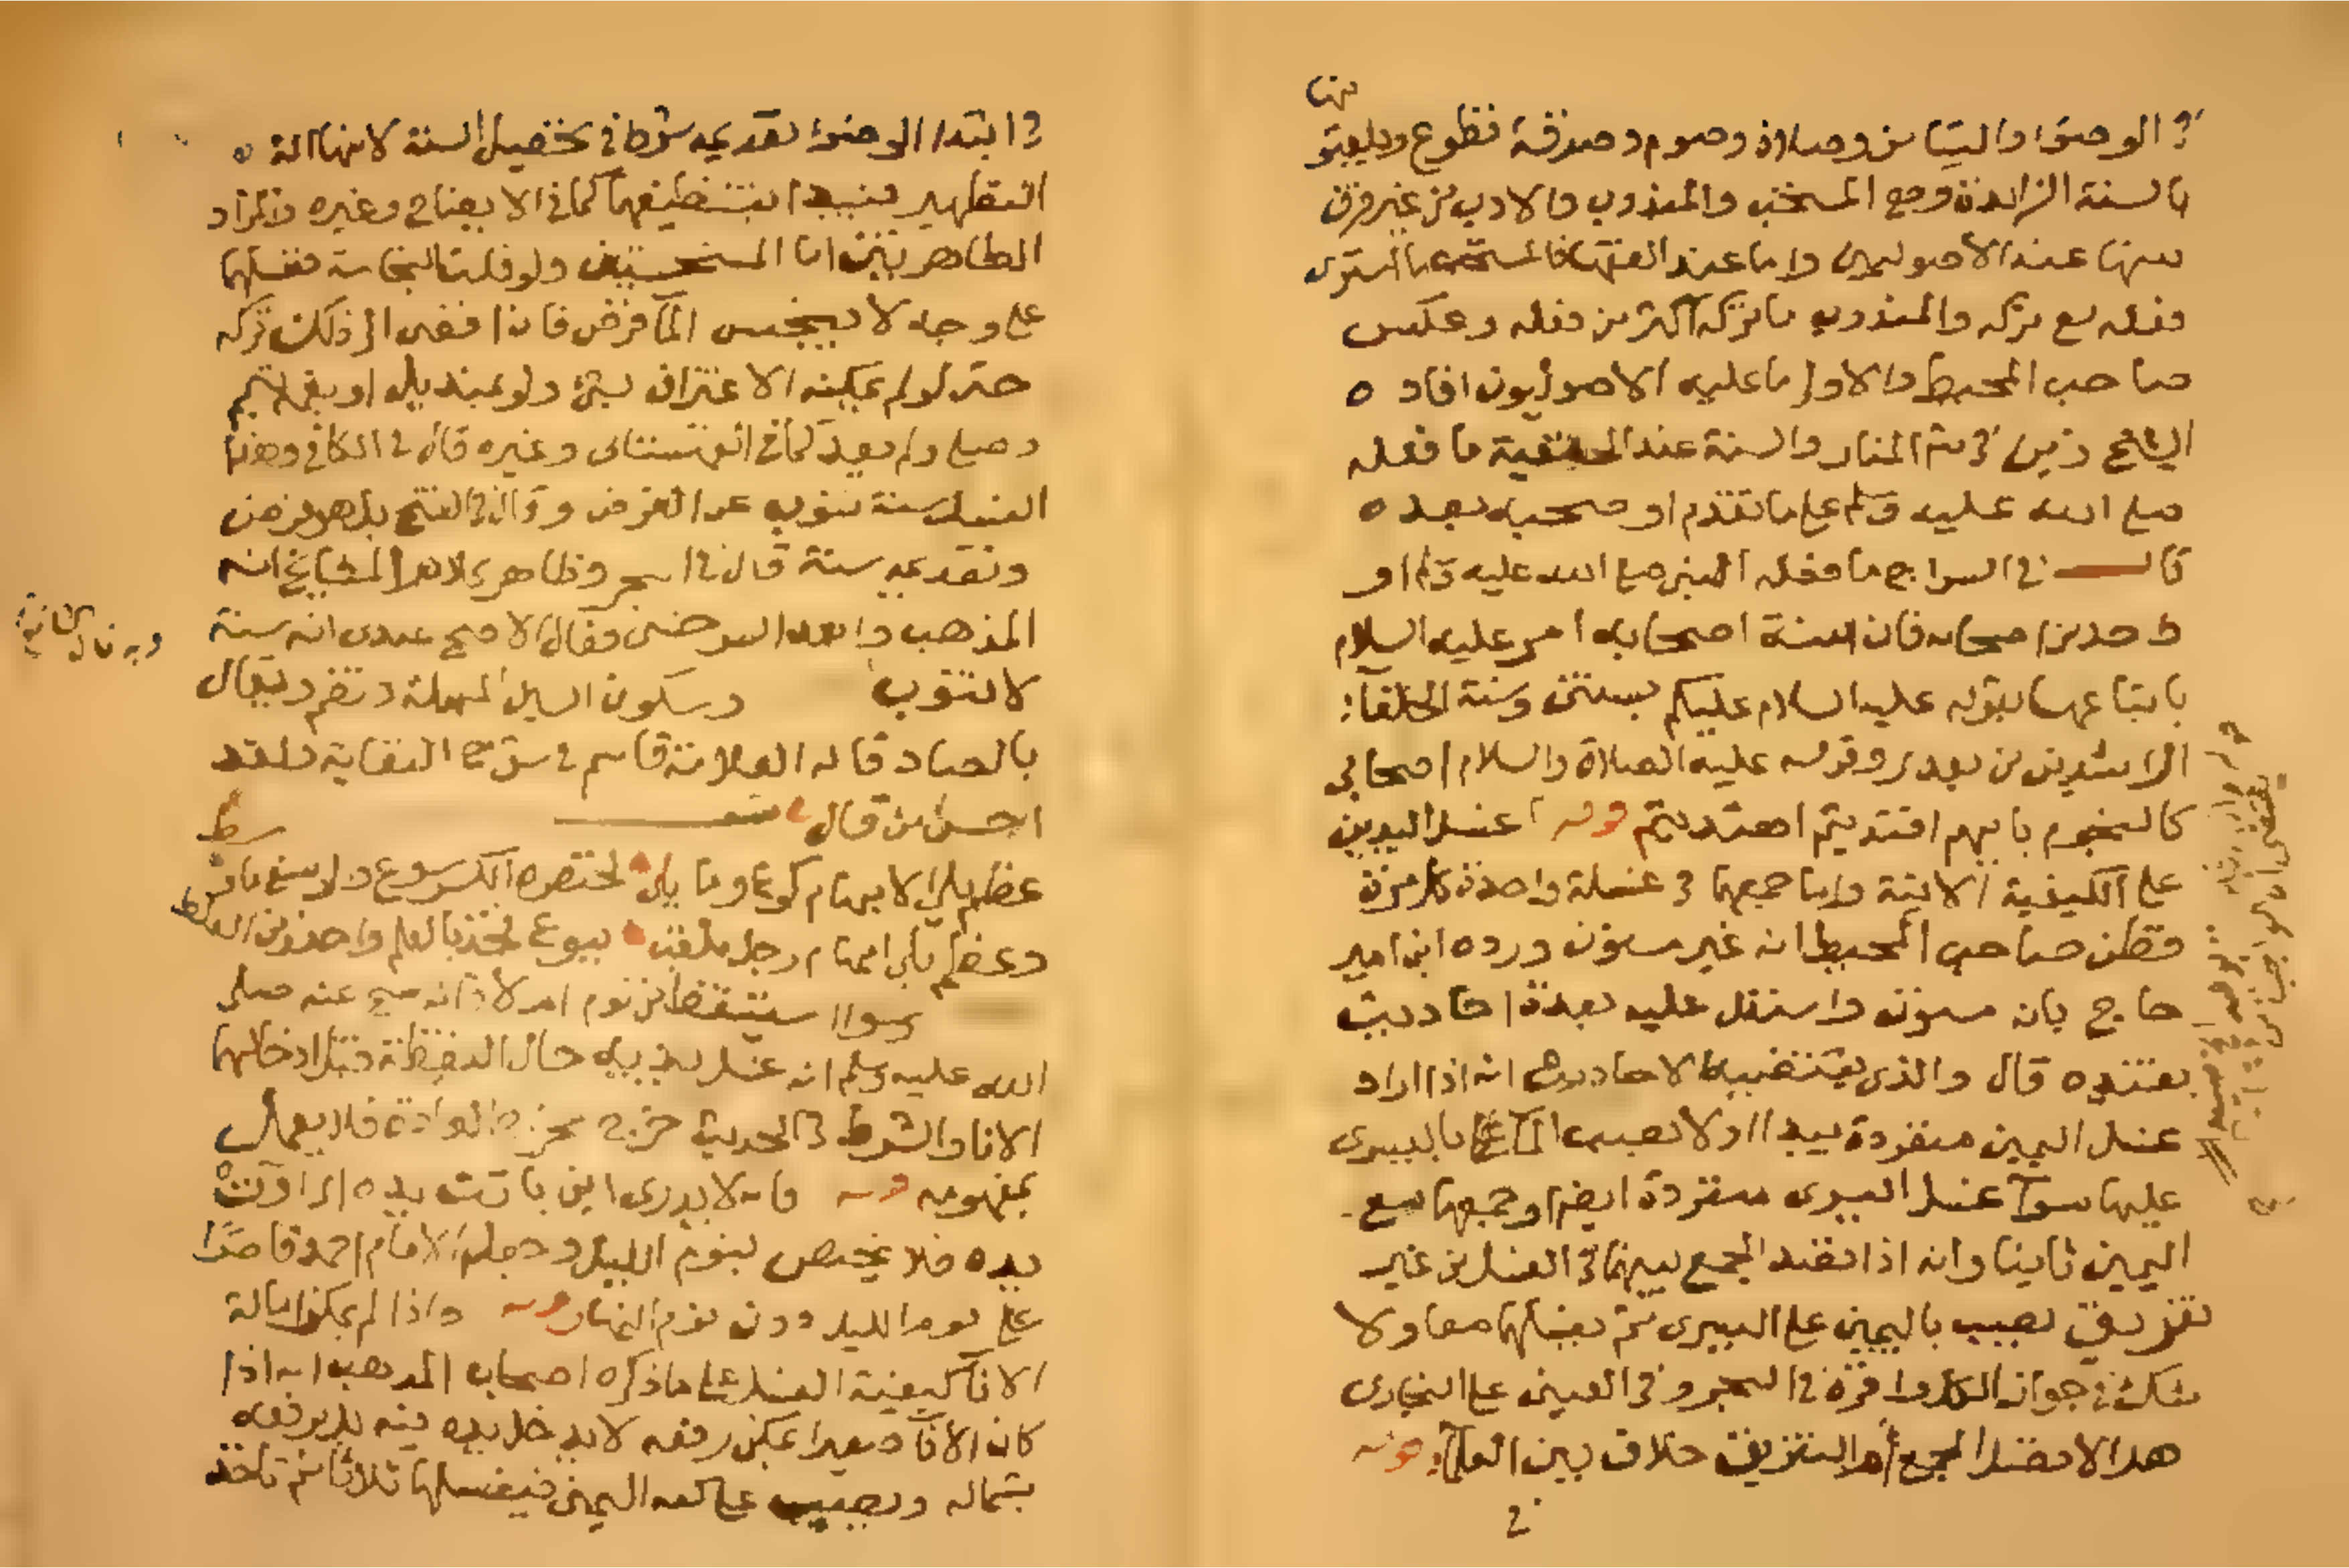 في الوضوء والتيامن وصلاة وصوم وصدقة تطوع ويلقبو
نها
بالسنة الزايدة وهي المستحب والمندوب والادب من غير فرق
بينها عند الاصوليين واما عند الفقها فالمستحب ما استوى
فعله مع تركه والمندوب ما تركه اكثر من فعله وعكس
صاحب المحيط والاولى ما عليه الاصوليون افاده
الشيخ زين في ش المنار والسنة عند الحنفية ما فعله
صلى الله عليه وسلم على ما تقدم او صحبه بعده
قال في السراج ما فعله النبي صلى الله عليه وسلم او
واحد من اصحابه فان سنة اصحابه امر عليه السلام
باتباعها بقوله عليه السلام عليكم بسنتي وسنة الخلفا
الراشدين من بعدي وقوله عليه الصلاة والسلام اصحابي
كالنجوم بايهم اقتديتم اهتديتم قوله غسل اليدين
على الكيفية الاتية واما جمعهما في غسلة واحدة كل مرة
فظن صاحب المحيط انه غير مسنون ورده ابن امير
حاج بانه مسنون واستدل عليه بعدة احاديث
تعضده قال والذي تقتضيه الاحاديث انه اذا اراد
غسل اليمين منفردة يبدا اولا بصب الما عليها باليسرى
عليها سوا غسل اليسرى منفردة ايضا او جمعها مع
اليمين ثانيا وانه اذا قصد الجمع بينهما في الغسل من غير
تفريق يصب باليمين على اليسرى ثم يغسلهما معا ولا
شك في جواز الكل واقره في البحر وفي العيني على البخاري
هل الافضل الجمع او التفريق خلاف بين العلما قوله
في ابتداء الوضوء تقديمه شرط في تحصيل السنة لانها الة
التطهير فيبدا بتنظيفهما كما في الايضاح وغيره والمراد
الطاهرتين اما المتنجستين ولو قلت النجاسة فغسلهما
على وجه لا ينجس الما فرض فان افضى الى ذلك تركه
حتى لو لم يمكنه الاغتراف بشئ ولو بمنديل او بفمه تيمم
وصلى ولم يعد كما في القهستاني وغيره قال في الكافي وهذا
الغسل سنة تنوب عن الفرض وقال في الفتح بل هو فرض
وتقديمه سنة قال في البحر وظاهر كلام المشايخ انه
المذهب وابعد السرخسي فقال الاصح عندي انه سنة
وبه قال
لا تنوب وسكون السين المهملة وتضم ويقال
بالصاد قاله العلامة قاسم في شرح النقاية ولقد
احسن من قال شعر
عظم يلي الابهام كوع وما يلي لخنصره الكرسوع والرسغ ما وسط
وعظم يلي ابهام رجل ملقب ببوع فخذ بالعلم واحذر من الغلط
سوا استيقظ من نوم ام لا لانه صح عنه صلى
الله عليه وسلم انه غسل يديه حال اليقظة قبل ادخالهما
الانا والشرط في الحديث خرج مخرج العادة فلا يعمل
بمفهومه قوله فانه لا يدري اين باتت يده اي اوت
يده فلا يختص بنوم الليل وجعله الامام احمد قاصرا
على نوم الليل دون نوم النهار قوله واذا لم يمكن امالة
الانا كيفية الغسل على ما ذكره اصحاب المذهب انه اذا
كان الانا صغيرا يمكن رفعه لا يدخل يده فيه بل يرفعه
بشماله ويصب على كفه اليمين فيغسلها ثلاثا ثم ياخذ